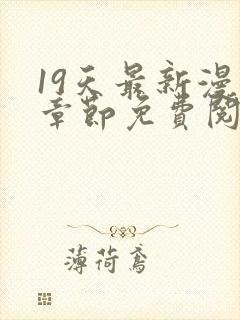 19天最新漫
章節免費閱
薄荷鳶